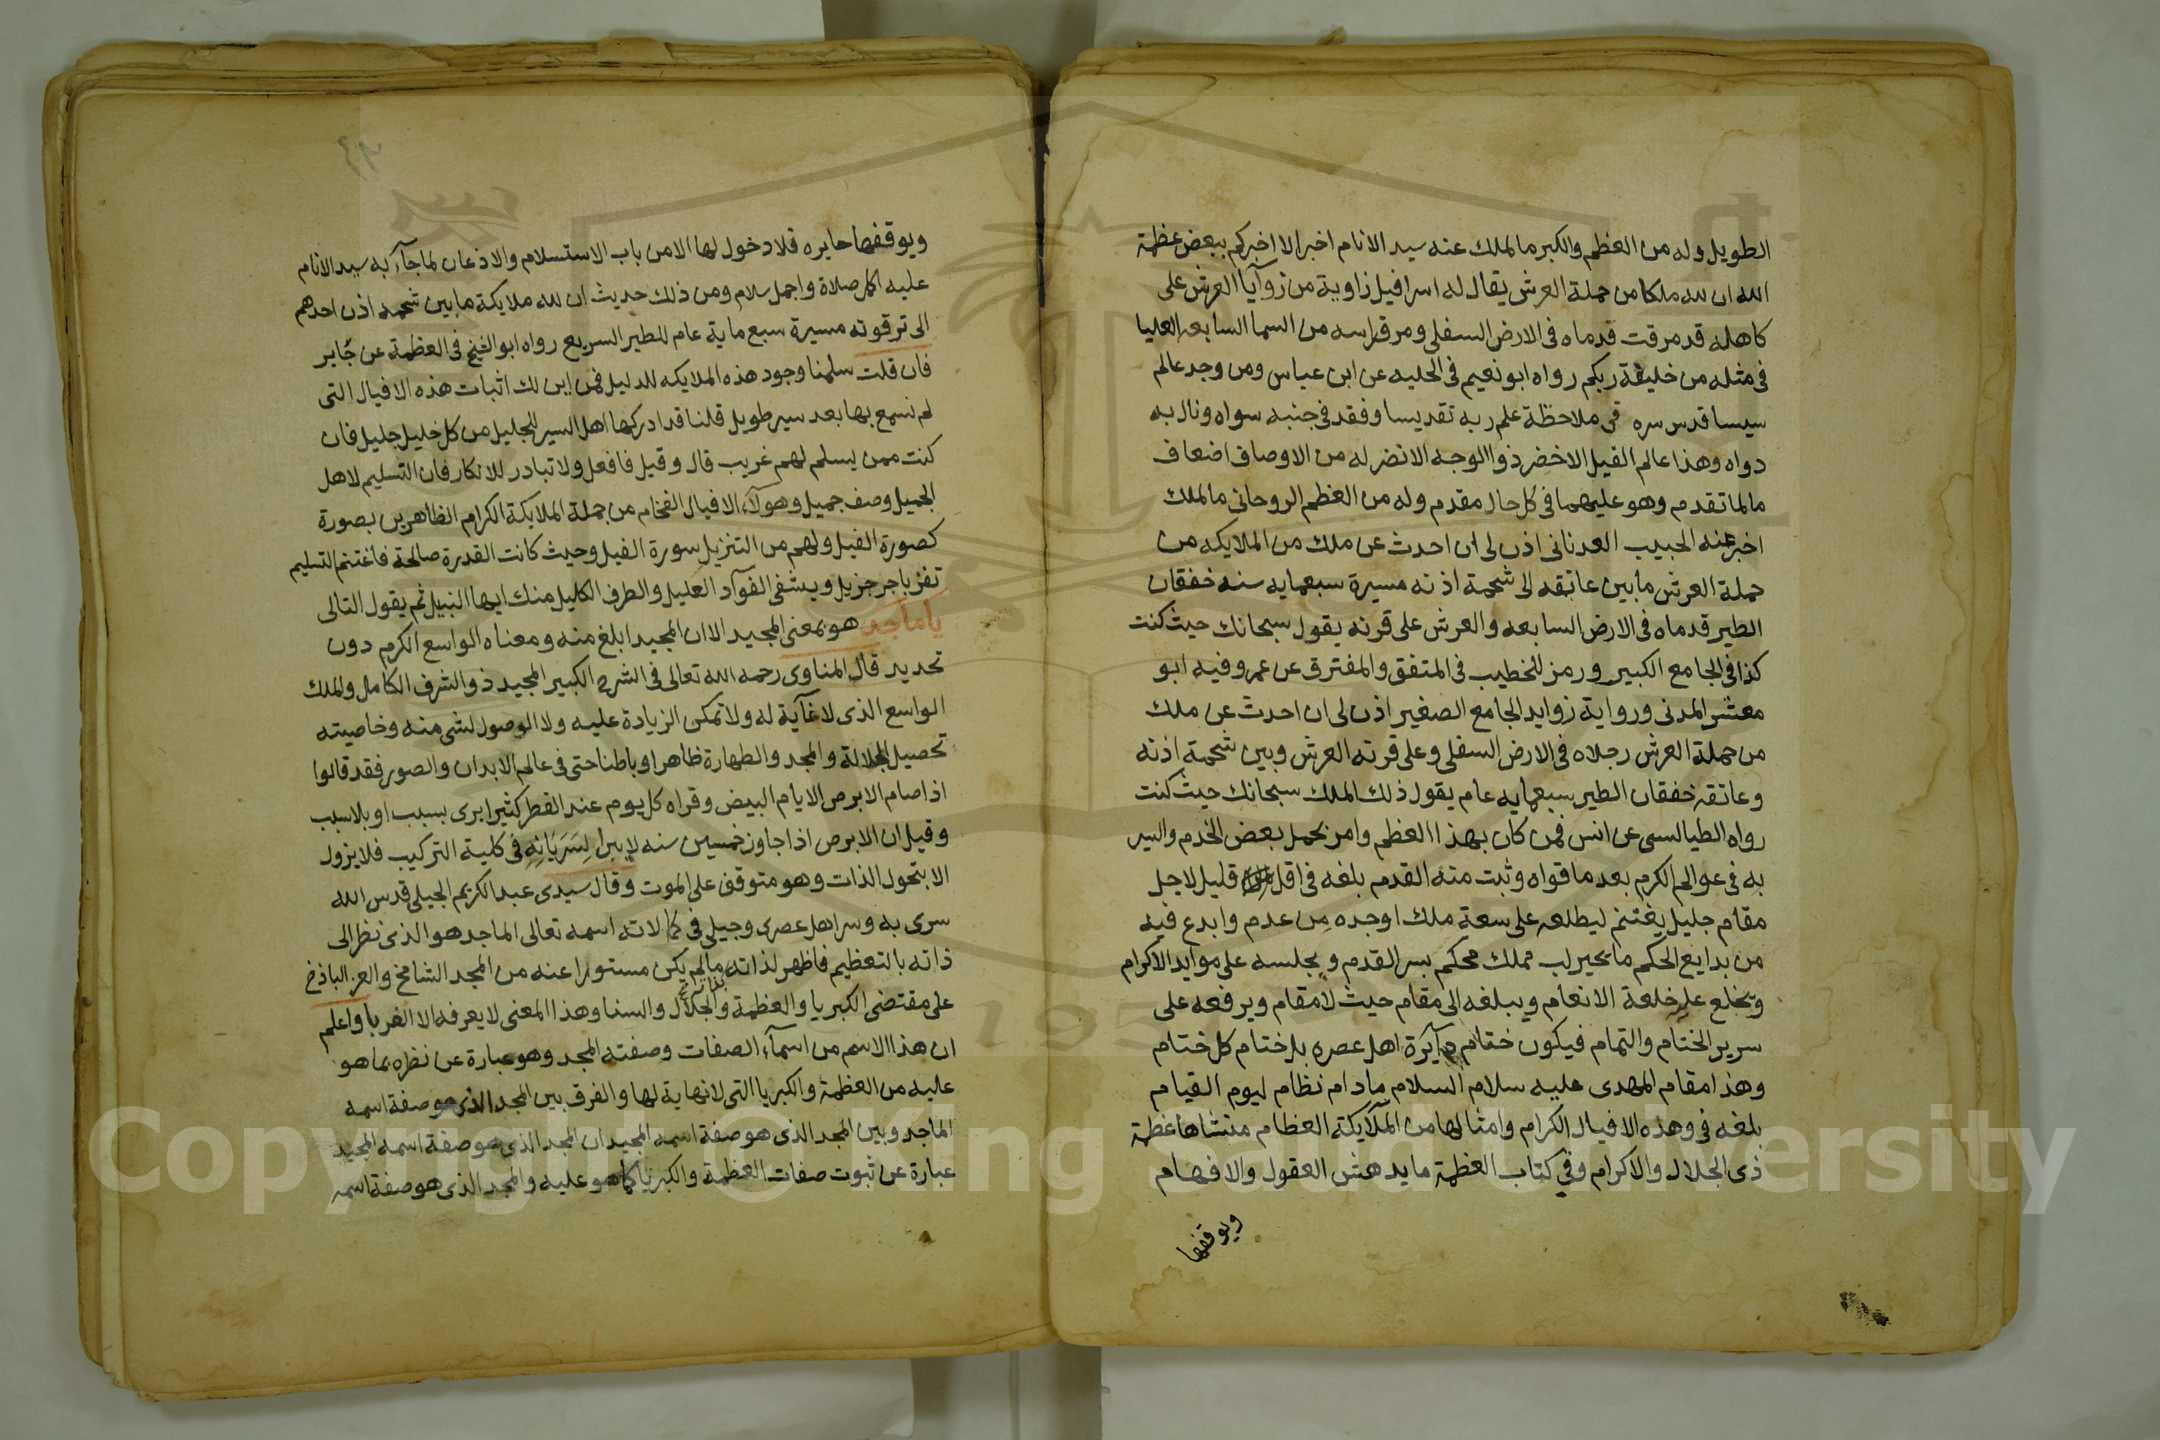 الطويل وله من العظم والكبر ما لملك عنه سيد الانام اخبر الا اخبركم ببعض عظمة
الله ان لله ملكا من حملة العرش يقال له اسرافيل زاوية من زوآيا العرش على
كاهله قد مرقت قدماه فى الارض السفلى ومرق راسه من السما السابعه العليا
فى مثله من خليقة ربكم رواه ابو نعيم فى الحليه عن ابن عباس ومن وجد عالم
سيسا قدس سره فى ملاحظة علم ربه تقديسا وفقد فى جنبه سواه ونال به
دواه وهذا عالم الفيل الاخضر ذوا الوجه الانضر له من الاوصاف اضعاف
ما لما تقدم وهو عليهما فى كل حال مقدم وله من العظم الروحانى ما لملك
اخبر عنه الحبيب العدنانى اذن لى ان احدث عن ملك من الملايكه من
حملة العرش ما بين عاتقه الى شحمة اذنه مسيرة سبعمايه سنه خفقان
الطير قدماه فى الارض السابعه والعرش على قرنه يقول سبحانك حيث كنت
كذا فى الجامع الكبير ورمز للخطيب فى المتفق والمفترق عن عمر وفيه ابو
معشر المدنى ورواية زوايد الجامع الصغير اذن لى ان احدث عن ملك
من حملة العرش رجلاه فى الارض السفلى وعلى قرنه العرش وبين شحمة اذنه
وعاتقه خفقان الطير سبعمايه عام يقول ذلك الملك سبحانك حيث كنت
رواه الطيالسى عن انس فمن كان بهذا العظم وامر بحمل بعض الخدم والسير
به فى عوالم الكرم بعد ما قواه وثبت منه القدم بلغه فى اقل قليل لاجل
مقام جليل يغتنم ليطلعه على سعة ملك اوجده من عدم وابدع فيه
من بدايع الحكم ما يحير لب مملك محكم بسر القدم ويجلسه على موايد الاكرام
ويخلع عليه خلعة الانعام ويبلغه الى مقام حيث لا مقام ويرفعه على
سرير الختام والتمام فيكون ختام دآيرة اهل عصره بل ختام كل ختام
وهذا مقام المهدى عليه سلام السلام ما دام نظام ليوم القيام
بلغه فى وهذه الافيال الكرام وامثالها من الملآيكة العظام منتشاها عظمة
ذى الجلال والاكرام وفى كتاب العظمة ما يدهش العقول والافهام
ويوقفها
ويوقفها حايره فلا دخول لها الا من باب الاستسلام والاذعان لما جآء به سيد الانام
عليه اكمل صلاة واجمل سلام ومن ذلك حديث ان لله ملايكة ما بين شحمه اذن احدهم
الى ترقوته مسيرة سبع ماية عام للطير السريع رواه ابو الشيخ فى العظمة عن جابر
فان قلت سلمنا وجود هذه الملايكه للدليل فمن اين لك اثبات هذه الافيال التى
لم نسمع بها بعد سير طويل قلنا قد ادركها اهل السير الجليل من كل خليل جليل فان
كنت ممن يسلم لهم غريب قال وقيل فافعل ولا تبادر للانكار فان التسليم لاهل
الجميل وصف جميل وهولآء الافيال الفخام من جملة الملايكة الكرام الظاهرين بصورة
كصورة الفيل ولهم من التنزيل سورة الفيل وحيث كانت القدرة صالحة فاغتنم التسليم
تفز باجر جزيل ويشفى الفوآد العليل والطرف الكليل منك ايها النبيل ثم يقول التالى
يا ماجد هو بمعنى المجيد الا ان المجيد ابلغ منه ومعناه الواسع الكرم دون
تحديد قال المناوى رحمه الله تعالى فى الشرح الكبير المجيد ذو الشرف الكامل والملك
الواسع الذى لا غآية له ولا تمكن الزيادة عليه ولا الوصول لشى منه وخاصيته
تحصيل الجلالة والمجد والطهارة ظاهرا وباطنا حتى فى عالم الابدان والصور فقد قالوا
اذا صام الابرص الايام البيض وقراه كل يوم عند الفطر كثيرا برى بسبب او بلا سبب
وقيل ان الابرص اذا جاوز خمسين سنه لا يبرا لسريانه فى كلية التركيب فلا يزول
الا بتحول الذات وهو متوقف على الموت وقال سيدى عبد الكريم الجيلى قدس الله
سرى به وسر اهل عصرى وجيلى فى كمالاته اسمه تعالى الماجد هو الذى نظر الى
ذاته بالتعظيم فاظهر لذاته بذاته ما لم يكن مستورا عنه من المجد الشامخ والعز الباذخ
على مقتضى الكبريا والعظمة والجلال والسنا وهذا المعنى لا يعرفه الا الغربا واعلم
ان هذا الاسم من اسمآء الصفات وصفته المجد وهو عبارة عن نظره بما هو
عليه من العظمة والكبريا التى لا نهاية لها والفرق بين المجد الذى هو صفة اسمه
الماجد وبين المجد الذى هو صفة اسمه المجيد ان المجد الذى هو صفة اسمه المجيد
عبارة عن ثبوت صفات العظمة والكبريا كما هو عليه والمجد الذى هو صفة اسمه
Copyright © King Saud University